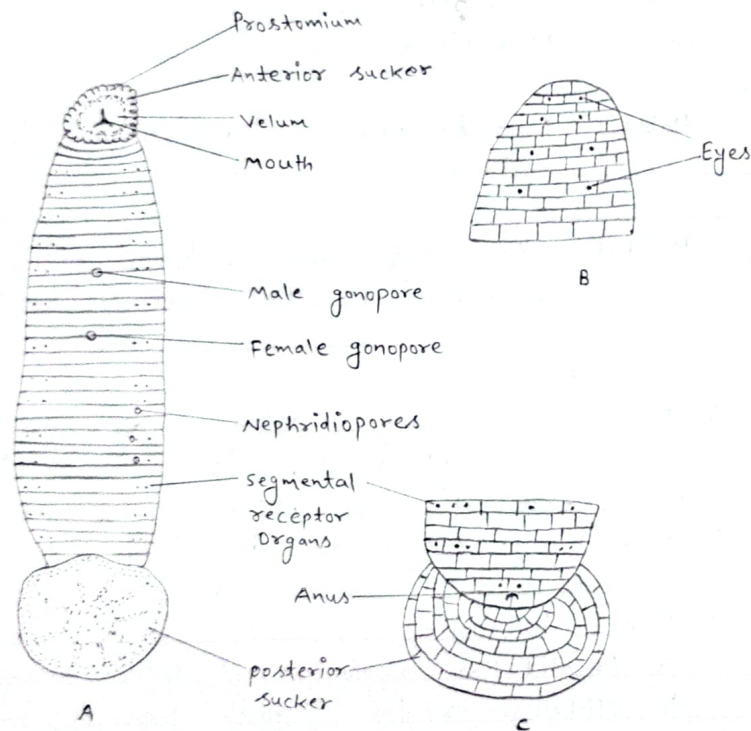 Prostomium
Anterior sucker
Velum
Mouth
Eyes
B
Male gonopore
Female gonopore
Nephridiopores
Segmental
receptor
Organs
Anus
posterior
sucker
A
C